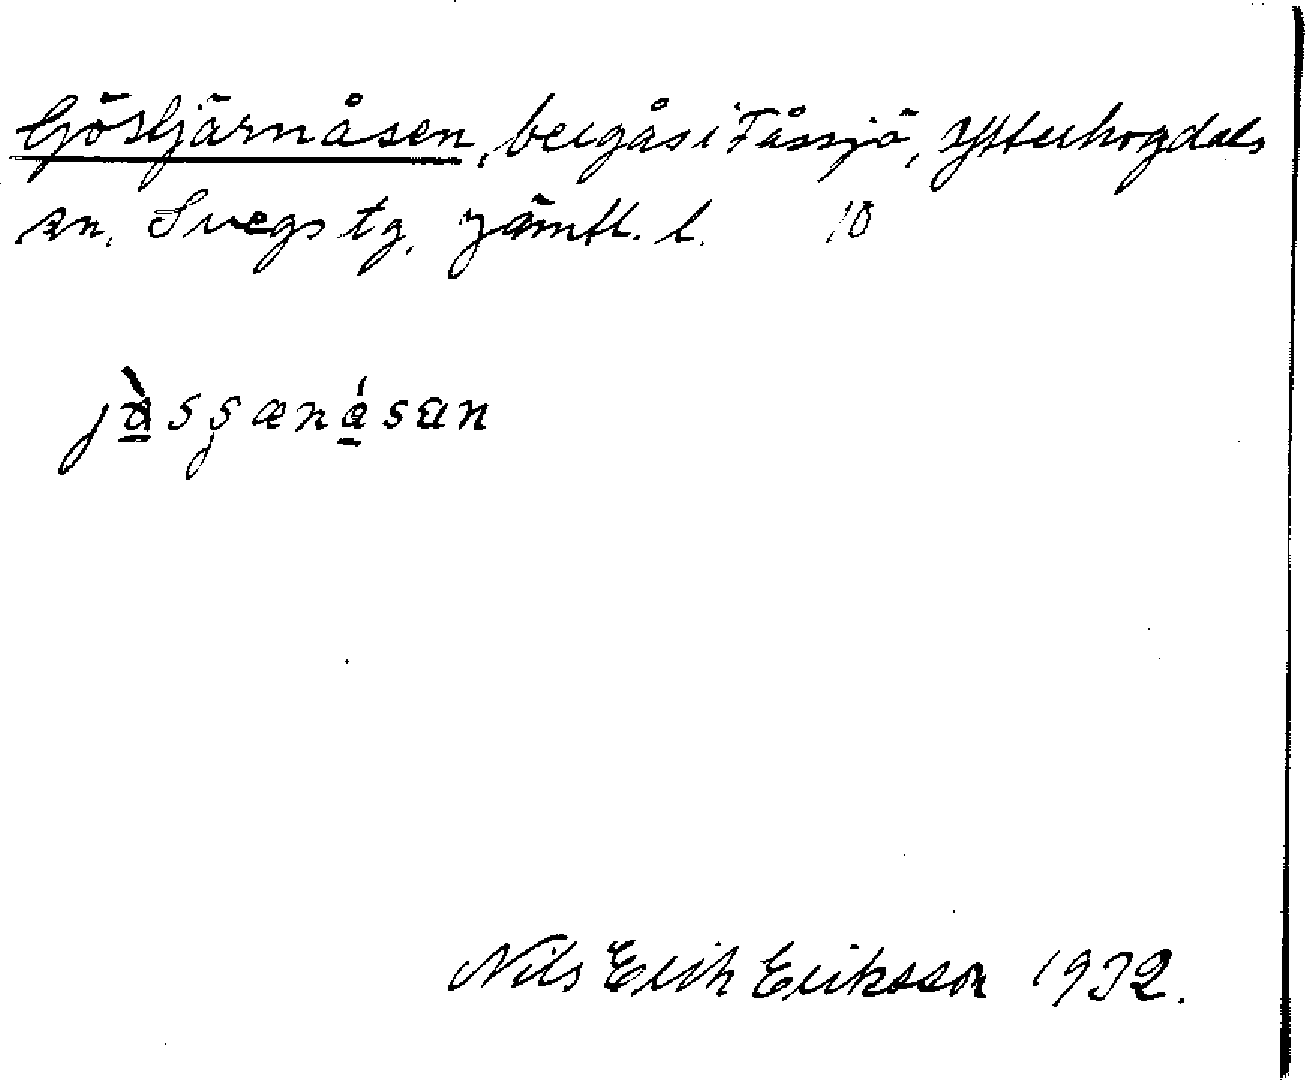 Göstjärnåsen, bergås i Fåssjö, Ytterhogdals
sn. Svegs tg. Jämtl. l. 10
jàsʂænásan
Nils Erik Eriksson 1932.